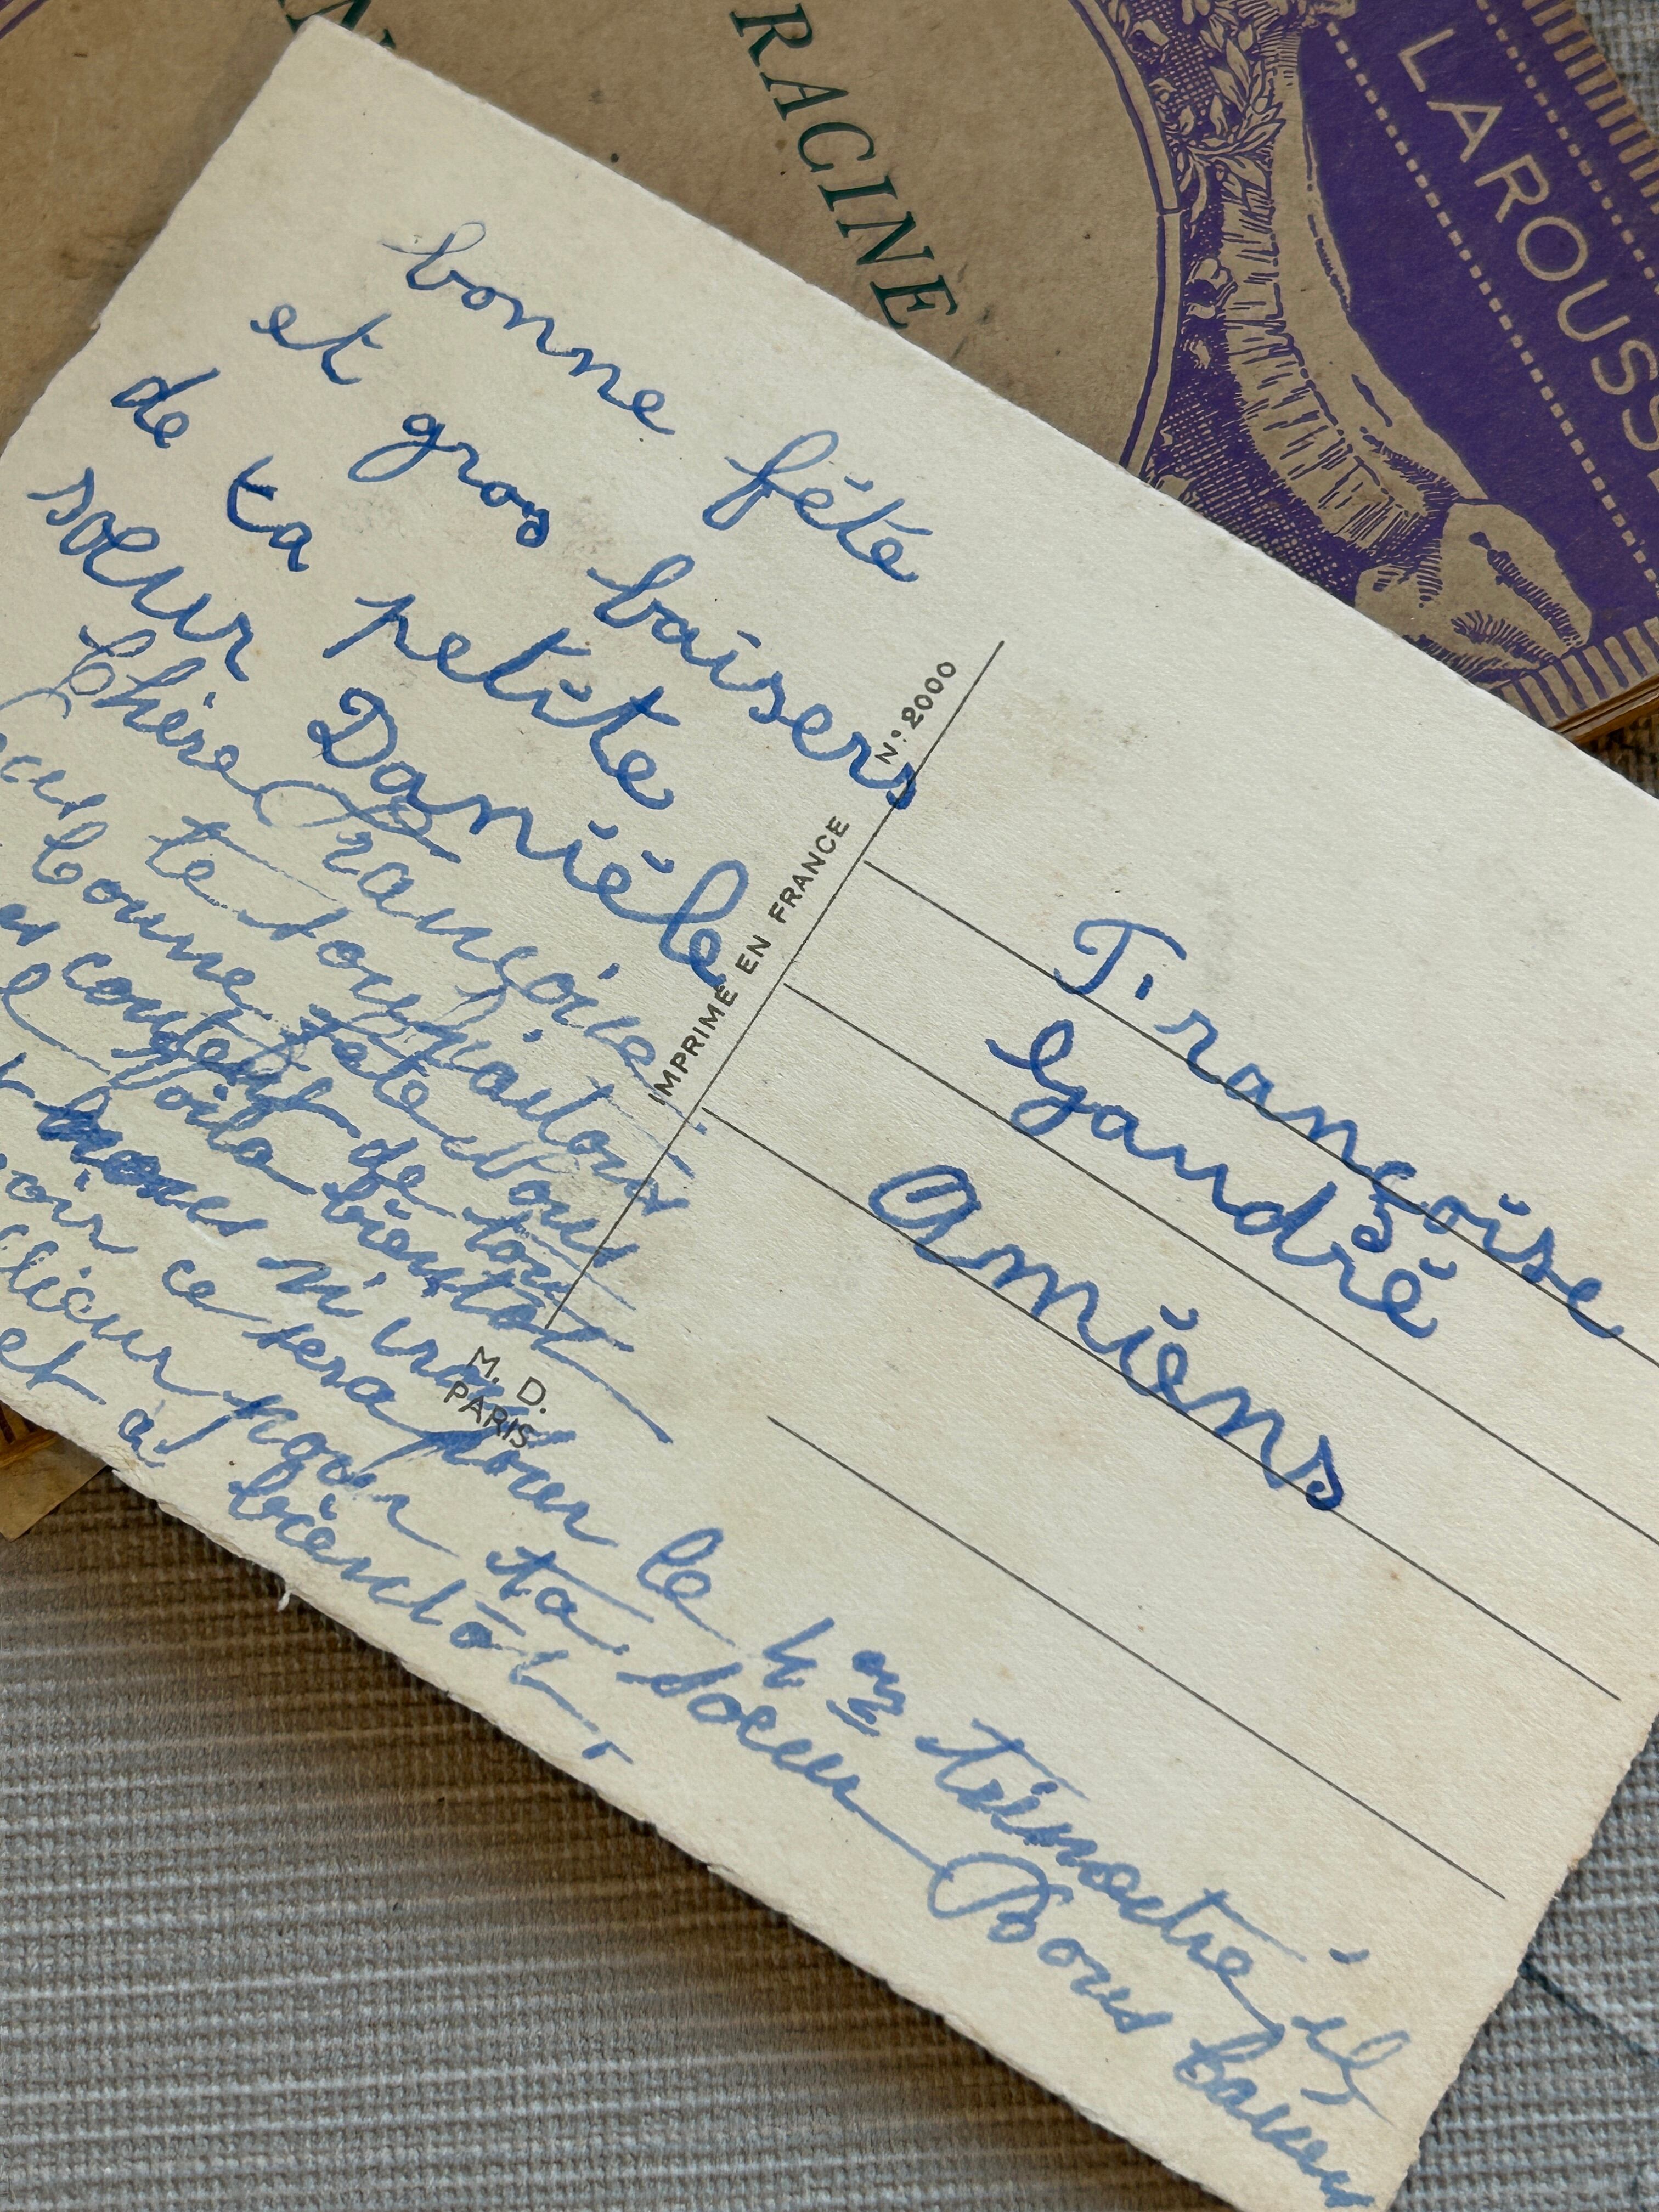 RACINE
LAROUSSE
bonne fête
et gros baisers
de ta petite
soeur Danièle
Chère Françoise
te souhaitons
bonne fête Nous
content de ton
Voila bientôt
ni
oir ce sera pour le 4 trimestre il
pour ta soeur Bons baisers
et à bientôt
N: 2000
IMPRIME EN FRANCE
M. D.
PARIS
Françoise
Gaudré
Amiens